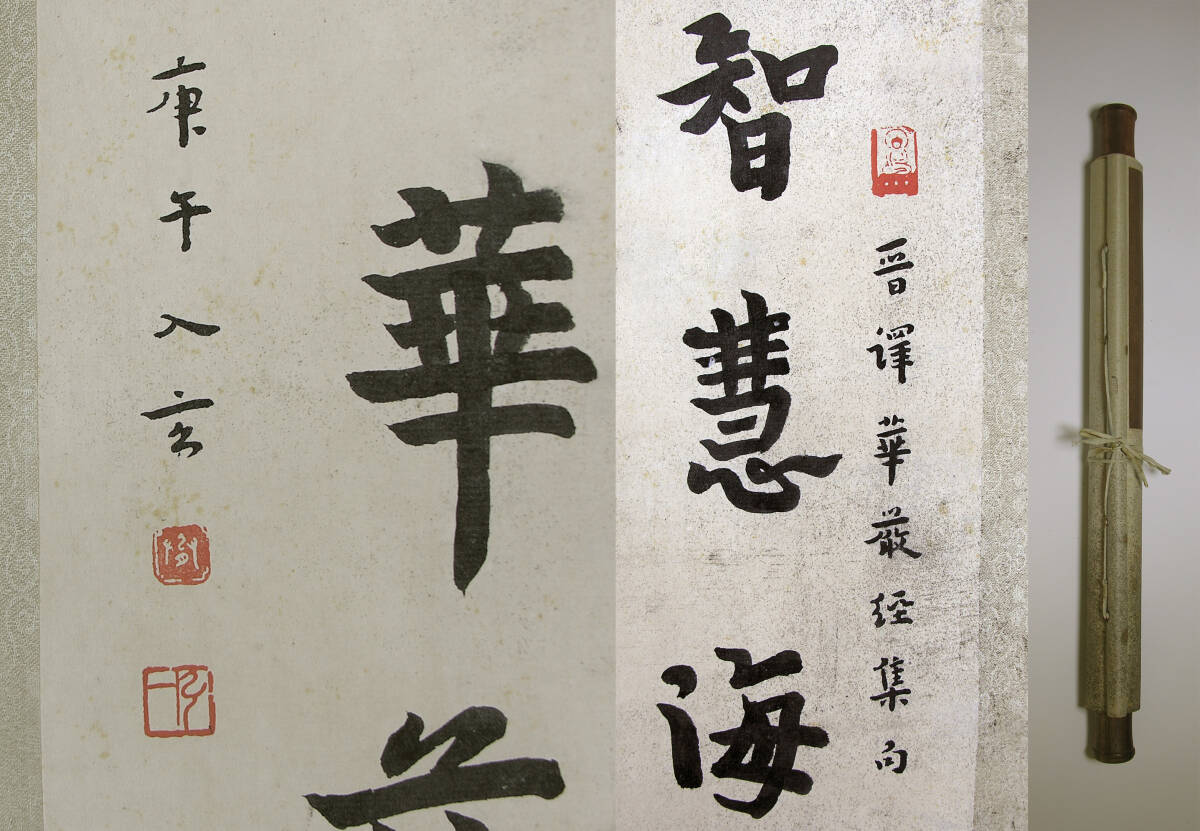 晋譯華嚴經集句
智慧海
華
庚午入玄